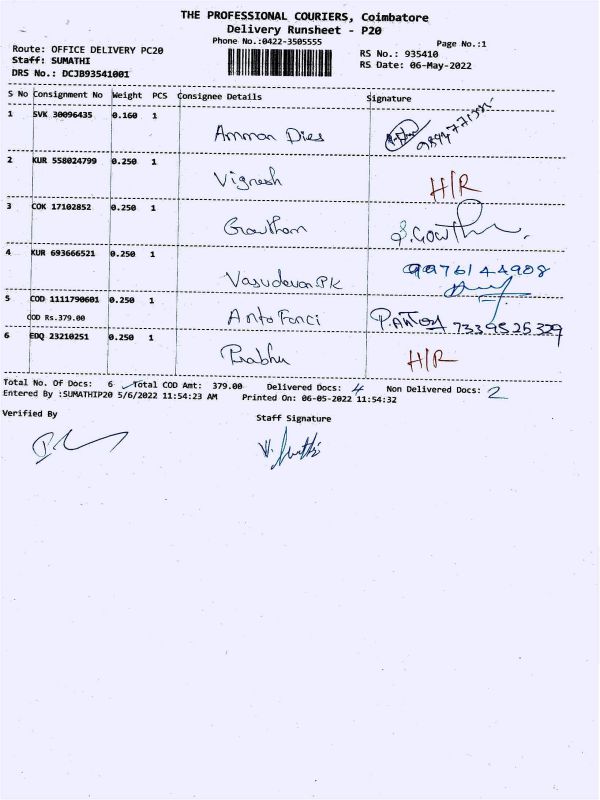 THE PROFESSIONAL COURIERS, Coimbatore
Delivery Runsheet - P20
Phone No.:0422-3505555
Page No.:1
Route: OFFICE DELIVERY PC20
RS No.: 935410
Staff: SUMATHI
RS Date: 06-May-2022
DRS No.: DCJB93541001
S No Consignment No Weight PCS Consignee Details Signature
1 SVK 30096435 0.160 1 Amman Dies
2 KUR 558024799 0.250 1 Vignesh H/R
3 COK 17102852 0.250 1 Gowtham S.Gowtham
4 KUR 693666521 0.250 1 Vasudevan PK 9976144908
5 COD 1111790601 0.250 1 Anto Fanci P.Antony 7339525329
COD Rs.379.00
6 EDQ 23210251 0.250 1 Prabhu H/R
Total No. Of Docs: 6 Total COD Amt: 379.00 Delivered Docs: 4 Non Delivered Docs: 2
Entered By :SUMATHIP20 5/6/2022 11:54:23 AM Printed On: 06-05-2022 11:54:32
Verified By
Staff Signature